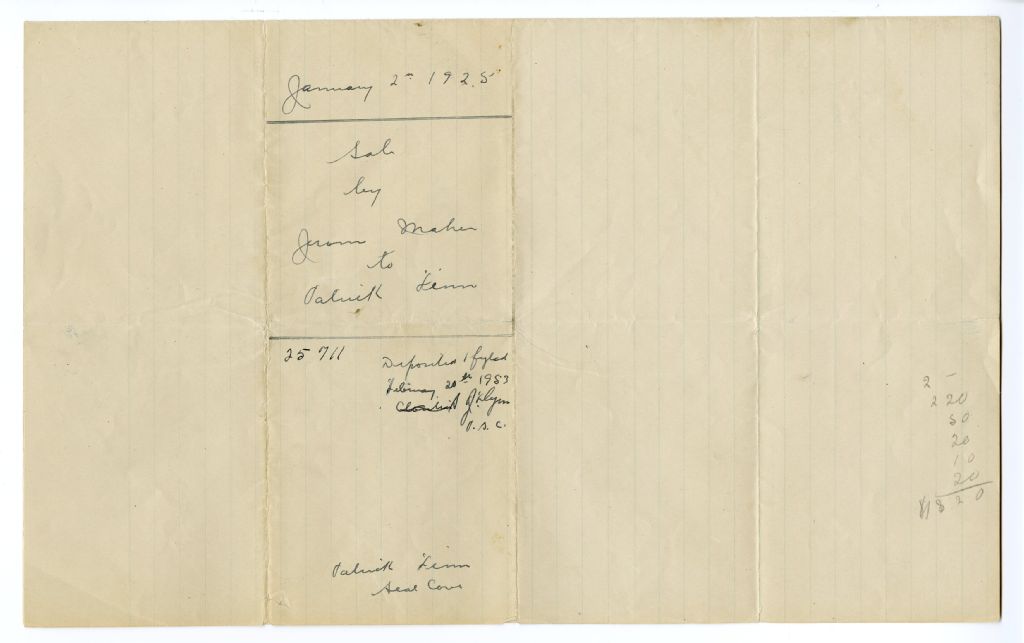 January 2nd 1925
Sale
by
Jerom Maher
to
Patrick Finn
25 711
Deposited & fyled
February 20th 1953
P. S. C.
Patrick Finn
Seal Cove
2 -
2 20
50
20
10
20
2 0